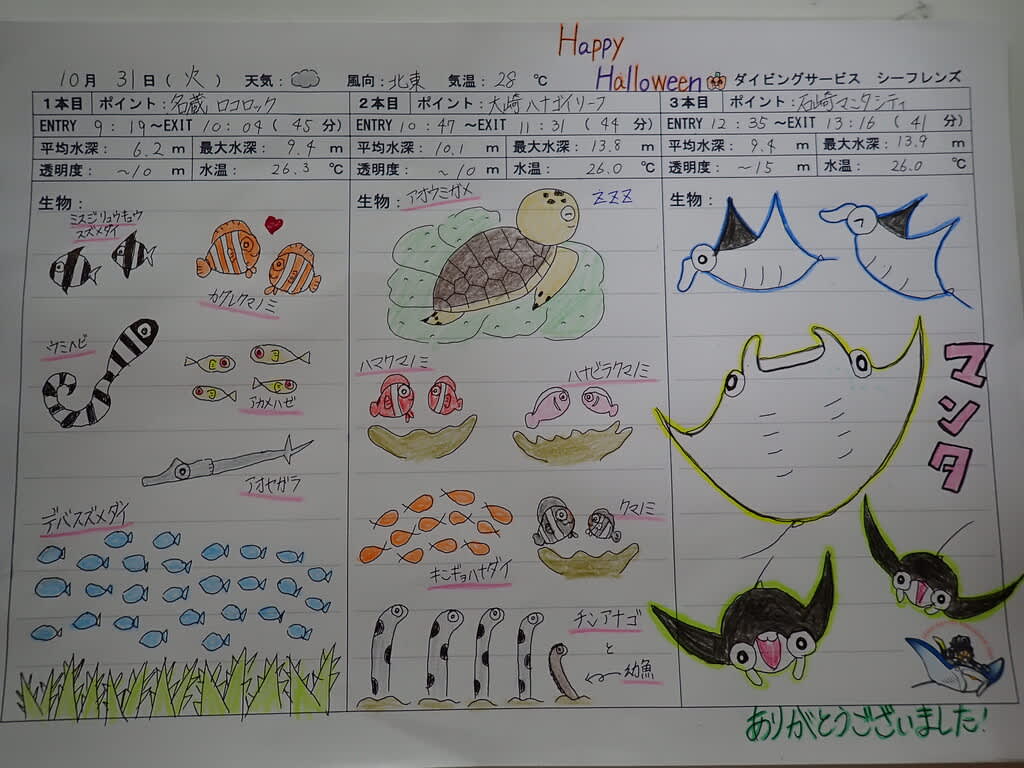 Happy
Halloween
10月 31日(火) 天気: 風向:北東 気温:28 ℃ ダイビングサービス シーフレンズ
1本目 ポイント:名蔵 ロコロック
ENTRY 9:19～EXIT 10:04(45分)
平均水深: 6.2 m 最大水深: 9.4 m
透明度: ～10 m 水温: 26.3 ℃
生物:
ミスジリュウキュウ
スズメダイ
カクレクマノミ
ウミヘビ
アカメハゼ
アオヤガラ
デバスズメダイ
2本目 ポイント:大崎ハナゴイリーフ
ENTRY 10:47～EXIT 11:31(44分)
平均水深: 10.1 m 最大水深: 13.8 m
透明度: ～10 m 水温: 26.0 ℃
生物:
アオウミガメ
ZZZ
ハマクマノミ
ハナビラクマノミ
クマノミ
キンギョハナダイ
チンアナゴ
と
幼魚
3本目 ポイント:石崎マンタシティ
ENTRY 12:35～EXIT 13:16(41分)
平均水深: 9.4 m 最大水深: 13.9 m
透明度: ～15 m 水温: 26.0 ℃
生物:
マンタ
ありがとうございました!